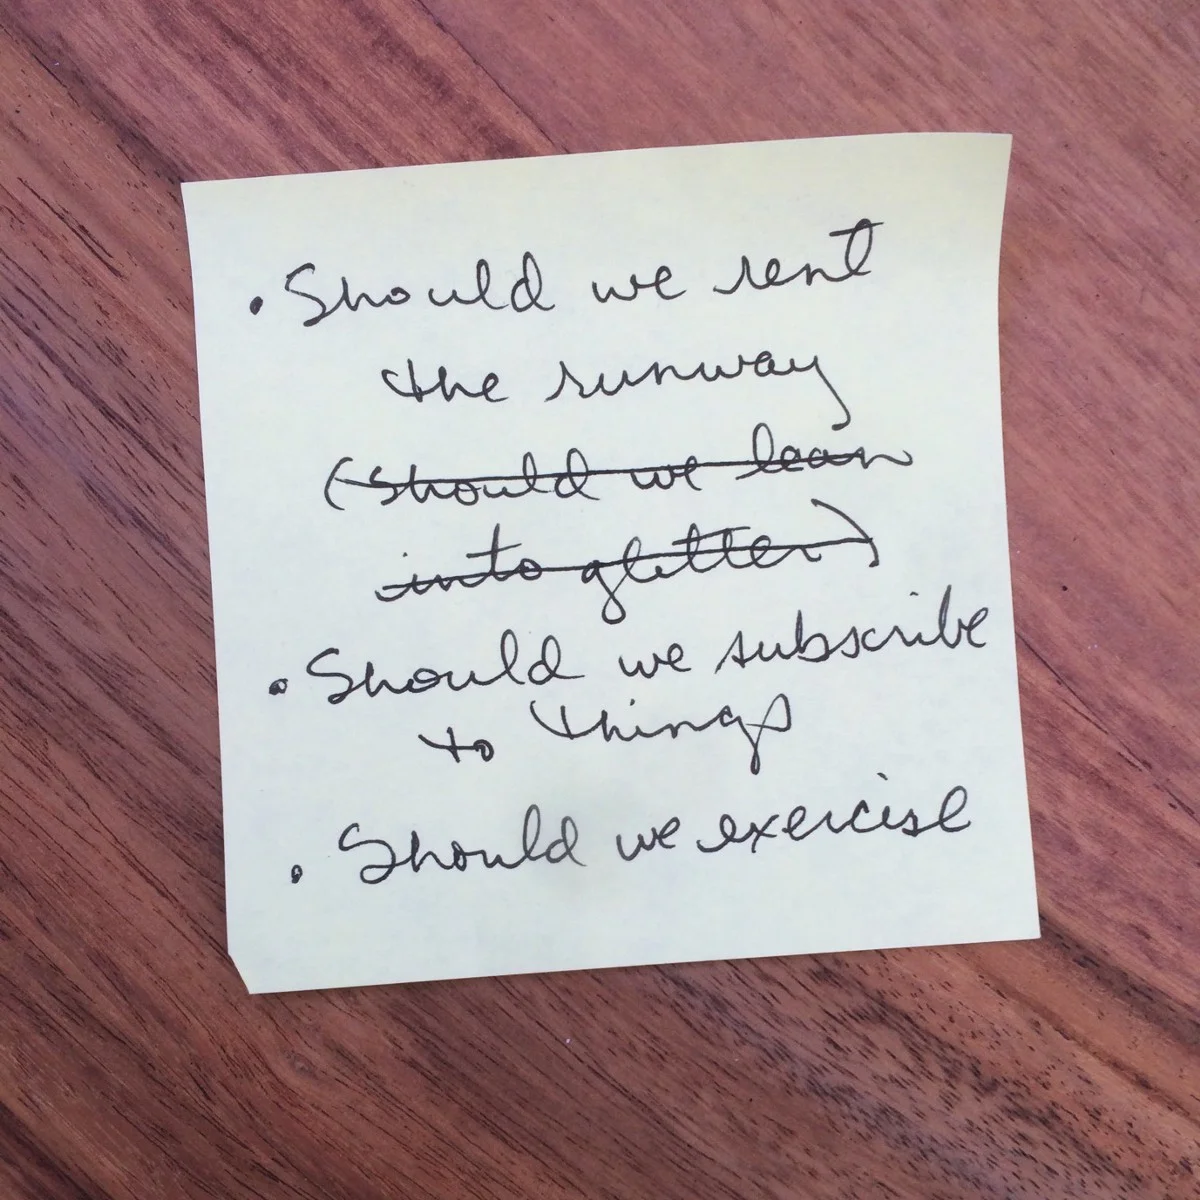 • Should we rent
the runway
(Should we lean
into glitter)
• Should we subscribe
to things
• Should we exercise